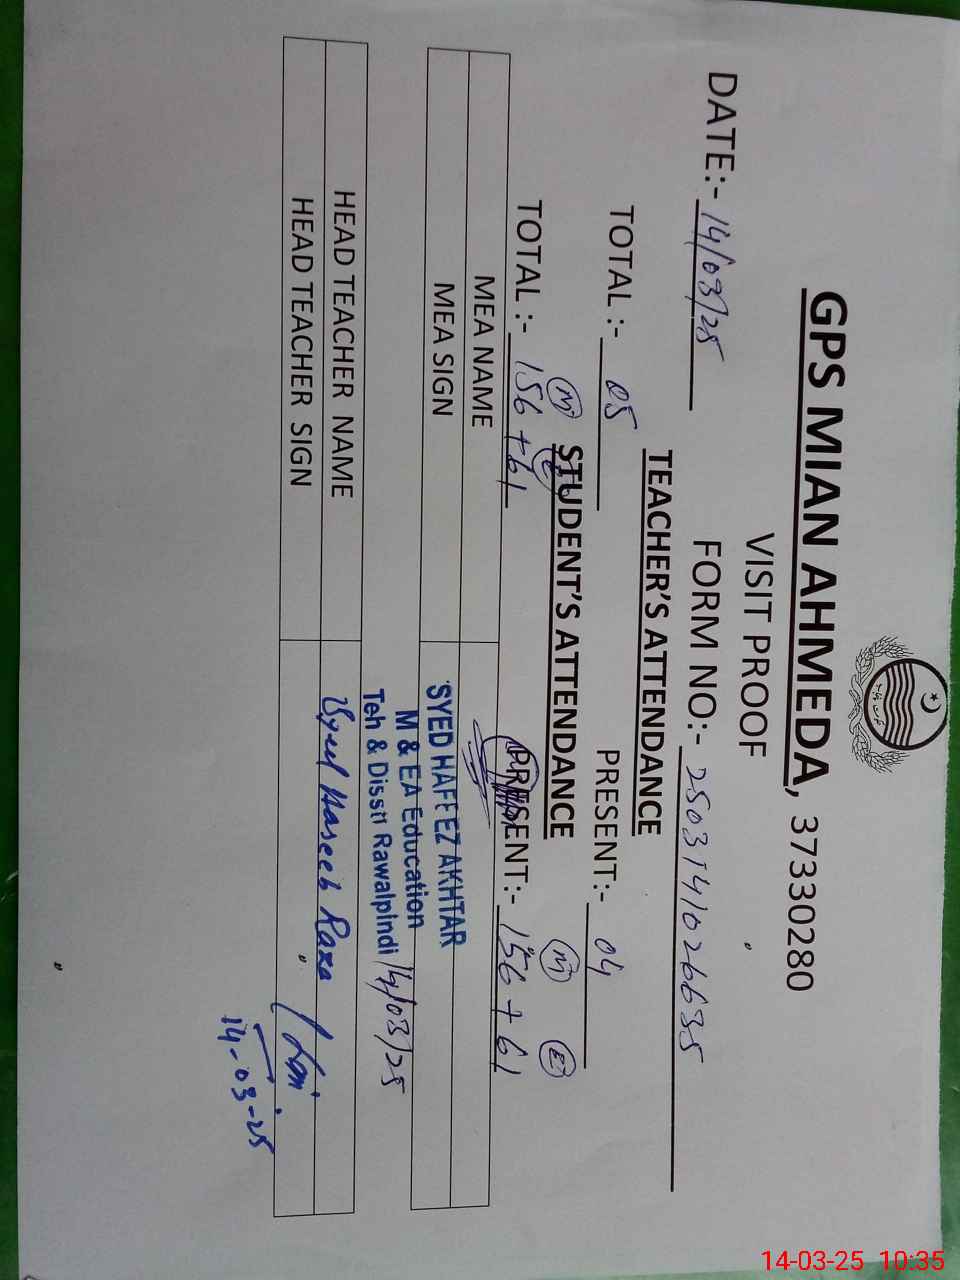 GPS MIAN AHMEDA, 37330280
VISIT PROOF
DATE:- 14/03/25 FORM NO:- 2503141026635
TEACHER'S ATTENDANCE
TOTAL :- 05 PRESENT:- 04
STUDENT'S ATTENDANCE
M E M E
TOTAL :- 156 + 61 PRESENT:- 156 + 61
MEA NAME
MEA SIGN
SYED HAFEEZ AKHTAR
M & EA Education
Teh & Disstt Rawalpindi 14/03/25
HEAD TEACHER NAME Syed Haseeb Raza
HEAD TEACHER SIGN
14-03-25
14-03-25 10:35